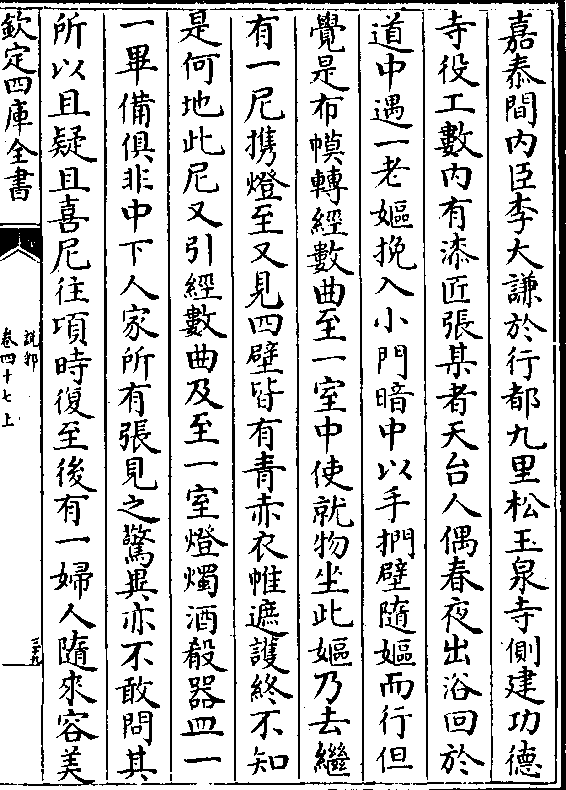 嘉泰間内臣李大謙於行都九里松玉泉寺側建功德
寺役工數内有漆匠張某者天台人偶春夜出浴回於
道中遇一老嫗挽入小門暗中以手捫壁隨嫗而行但
覺是布幙轉經數曲至一室中使就物坐此嫗乃去繼
有一尼攜燈至又見四壁皆有青赤衣帷遮護終不知
是何地此尼又引經數曲及至一室燈燭酒殽器皿一
一畢備俱非中下人家所有張見之驚異亦不敢問其
所以且疑且喜尼往項時復至後有一婦人隨來容美
欽定四庫全書
說郛
卷四十七上
三十九